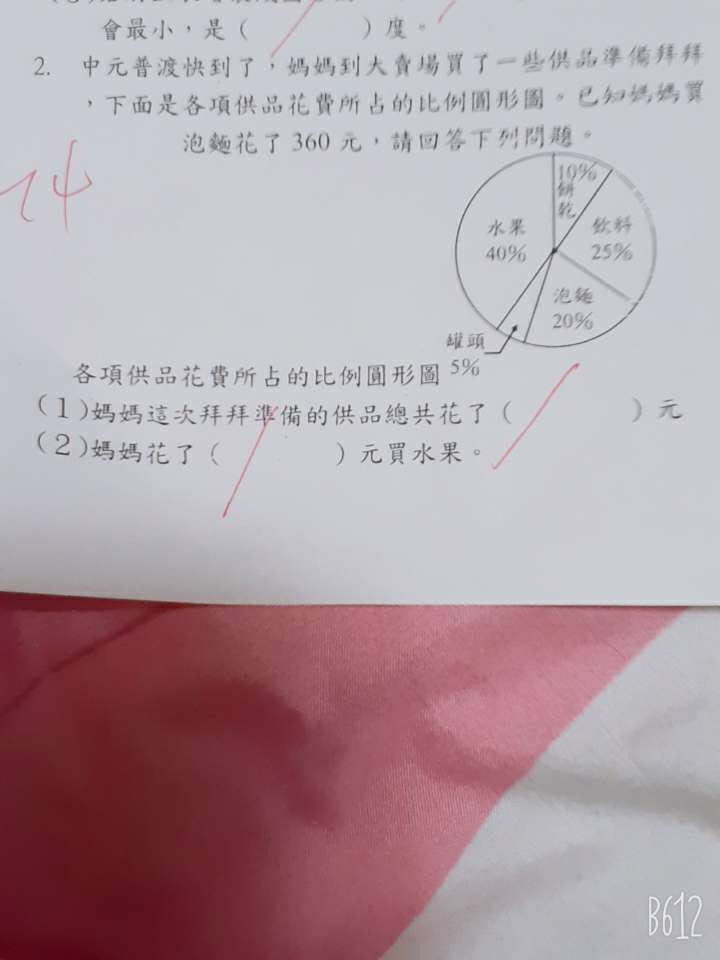 會最小，是（　　　）度。
2. 中元普渡快到了，媽媽到大賣場買了一些供品準備拜拜
，下面是各項供品花費所占的比例圓形圖。已知媽媽買
泡麵花了 360 元，請回答下列問題。
24
10%
餅
乾
水果
40%
飲料
25%
泡麵
20%
罐頭
5%
各項供品花費所占的比例圓形圖
(1)媽媽這次拜拜準備的供品總共花了（　　　）元
(2)媽媽花了（　　　）元買水果。
B612